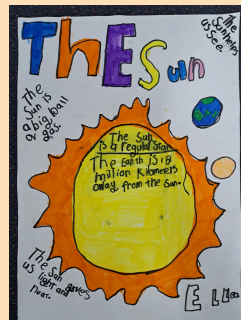 The Sun
The
Sun helps
us see.
The
Sun is
a big ball
gas
The Sun
is a regular star.
The Earth is 18
million kilometers
away from the Sun.
The Sun gives
us light and